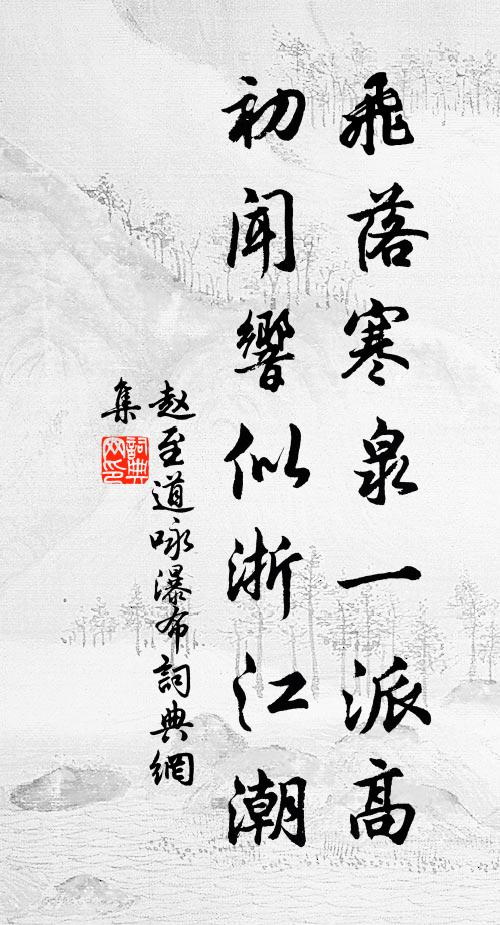 飛落寒泉一派高
初聞響似浙江潮
赵至道咏瀑布詞典網
集
詞典
网印